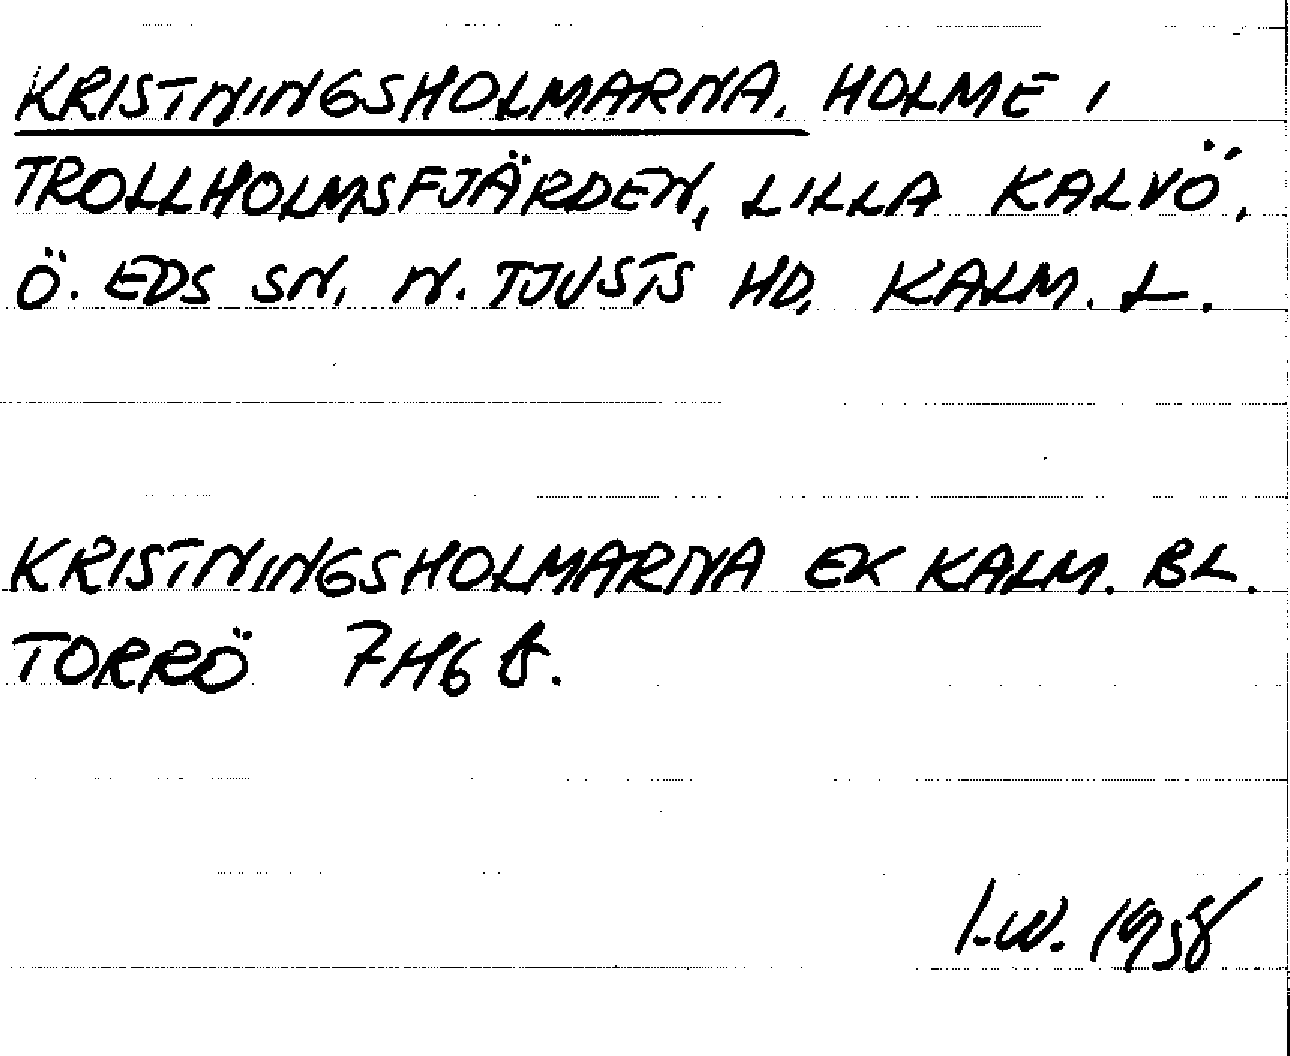 KRISTNINGSHOLMARNA. HOLME I
TROLLHOLMSFJÄRDEN, LILLA KALVÖ,
Ö. EDS SN, N. TJUSTS HD, KALM. L.
KRISTNINGSHOLMARNA EK KALM. BL.
TORRÖ 7H6
I.W. 1958